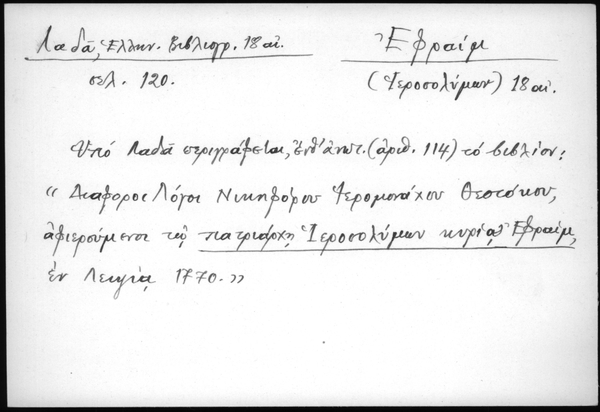 Λαδᾶ, Ἑλλην. Βιβλιογρ. 18 αἰ.
σελ. 120.
Ἐφραίμ
(Ἱεροσολύμων) 18 αἰ.
Ὑπό Λαδᾶ περιγράφεται, ἔνθ' ἀνωτ. (ἀριθ. 114) τό βιβλίον:
"Διάφοροι Λόγοι Νικηφόρου Ἱερομονάχου Θεοτόκου,
ἀφιερούμενοι τῷ πατριάρχῃ Ἱεροσολύμων κυρίῳ Ἐφραίμ,
ἐν Λειψίᾳ 1770."